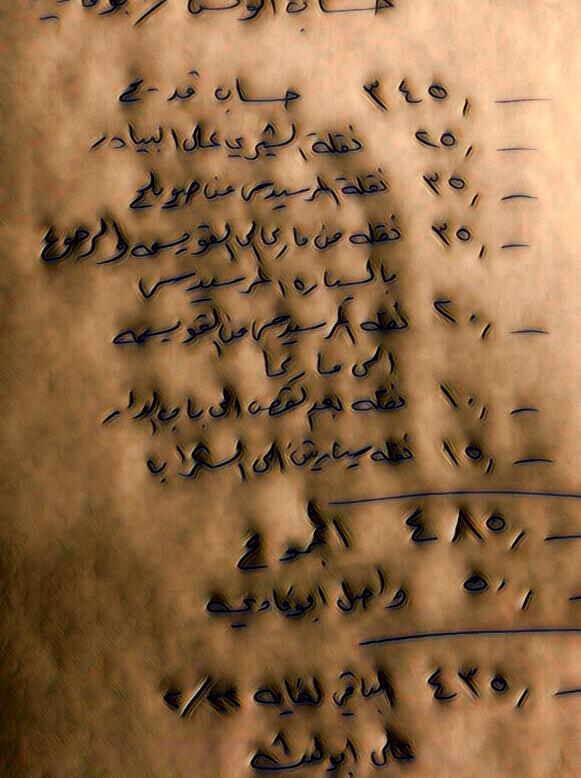 — ٣٤٥٫ حساب قديم
— ٢٥٫ نقلة الشيري على البيادر
— ٣٥٫ نقلة المرسيدس من صويلح
— ٣٥٫ نقله من ماركا الى القويسمه والرجوع
بالسياره المرسيدس
— ٢٠٫ نقله المرسيدس من القويسمه
الى ماركا
— ١٠٫ نقله بعد القص الى باب الدار
— ١٥٫ نقله الى السكراب
— ٤٨٥٫ المجموع
— ٥٠٫ واصل ابو فادي
— ٤٣٥٫ الباقي لغايه ٢٢/٢
على ابو ليث